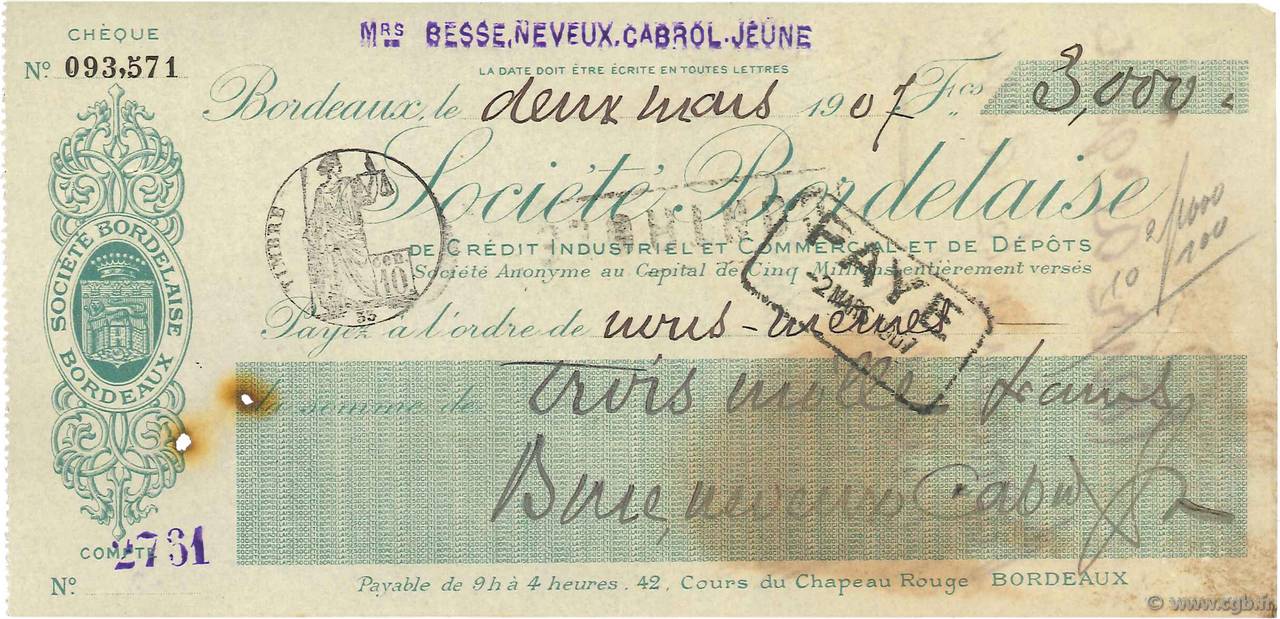 CHÈQUE
Nº 093,571
MRS BESSE, NEVEUX, CABROL-JEUNE
LA DATE DOIT ÊTRE ÉCRITE EN TOUTES LETTRES
Bordeaux, le deux mars 1907 Fcs 3,000
Société Bordelaise
DE CRÉDIT INDUSTRIEL ET COMMERCIAL ET DE DÉPÔTS
Société Anonyme au Capital de Cinq Millions entièrement versés
TIMBRE
10
33
PAYÉ
-2 MARS 1907
2/1000
10 100
Payez à l'ordre de nous-mêmes
la somme de trois mille francs
Besse neveux Cabrol Jne
SOCIÉTÉ BORDELAISE
BORDEAUX
COMPTE
Nº 2761
Payable de 9h à 4 heures. 42, Cours du Chapeau Rouge BORDEAUX
© www.cgb.fr